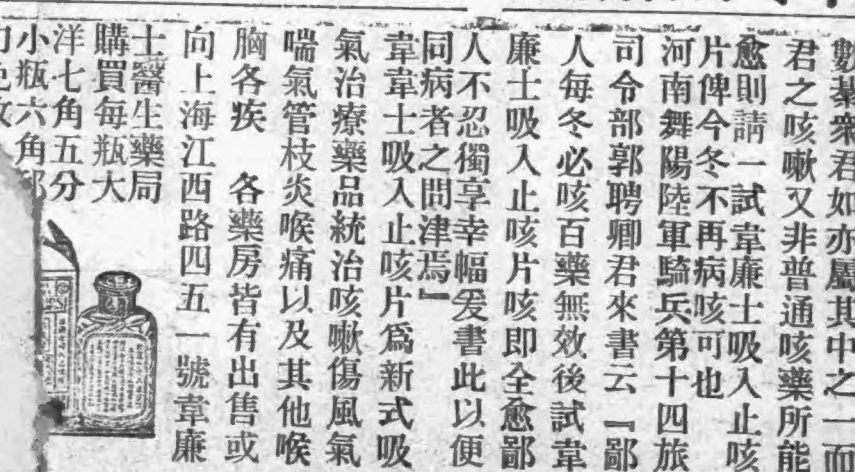 數綦衆君如亦屬其中之一而
君之咳嗽又非普通咳藥所能
愈則請一試韋廉士吸入止咳
片俾今冬不再病咳可也
河南舞陽陸軍騎兵第十四旅
司令部郭聘卿君來書云『鄙
人每冬必咳百藥無效後試韋
廉士吸入止咳片咳即全愈鄙
人不忍獨享幸幅爰書此以便
同病者之問津焉』
韋韋士吸入止咳片爲新式吸
氣治療藥品統治咳嗽傷風氣
喘氣管枝炎喉痛以及其他喉
胸各疾 各藥房皆有出售或
向上海江西路四五一號韋廉
士醫生藥局
購買每瓶大
洋七角五分
小瓶六角郵